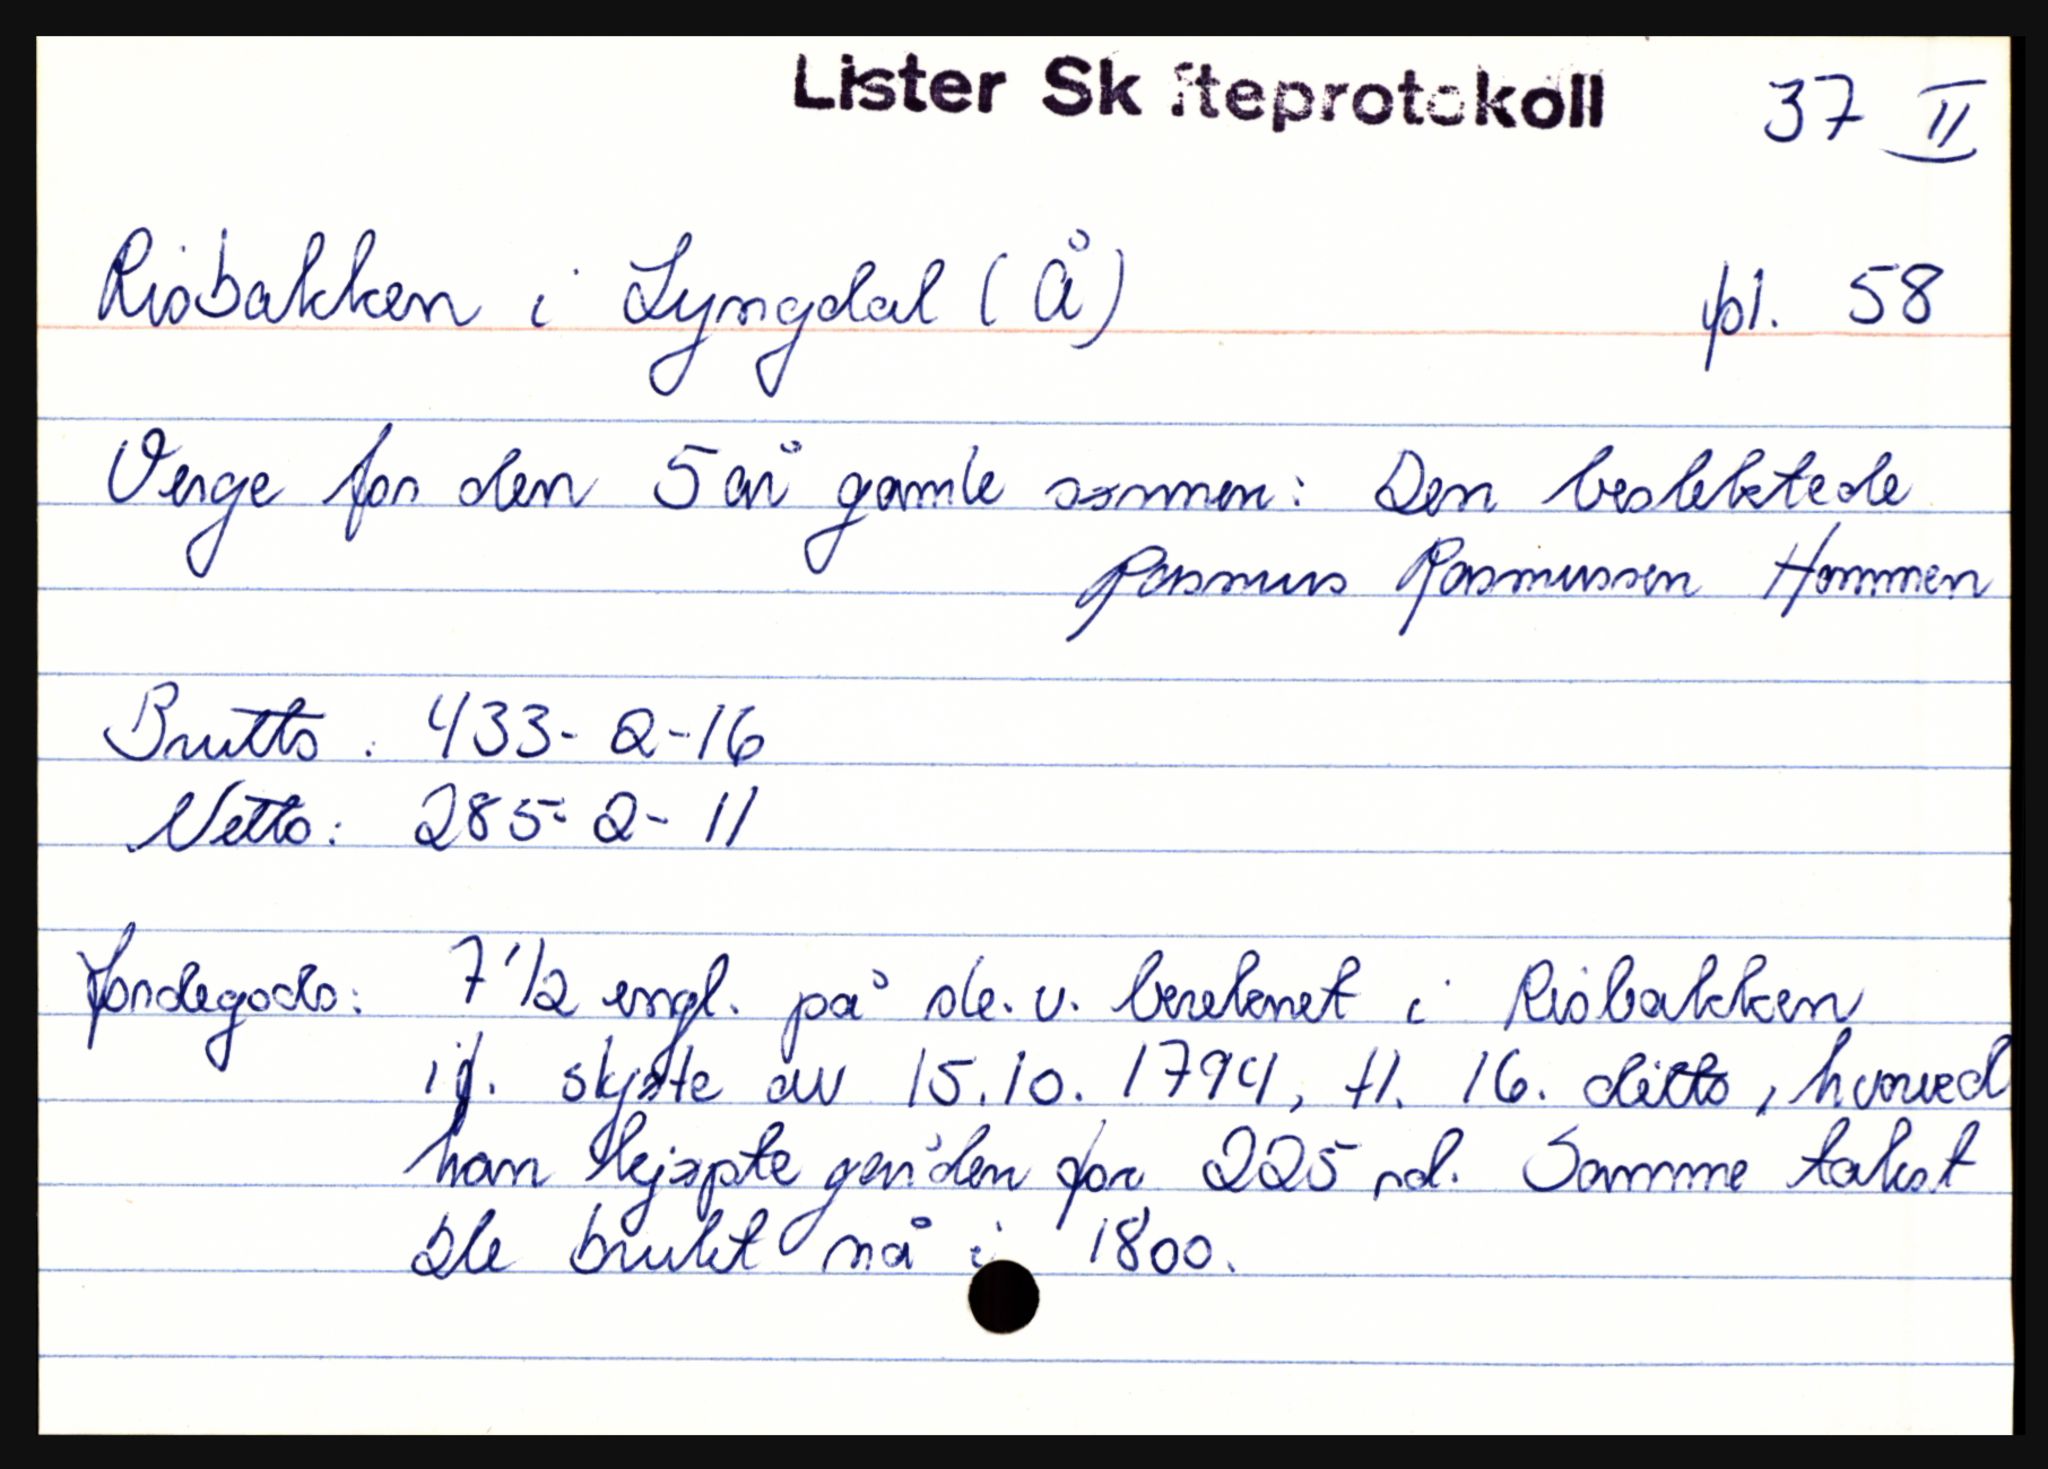 Lister Skifteprotokoll 37 II
Risbakken i Lyngdal (Å) fol. 58
Verge for den 5 år gamle sønnen: Den beslektede
Rasmus Rasmussen Hommen
Brutto: 433-2-16
Netto: 285-2-11
Jordegods: 7 1/2 engl. på sle. v. bereknet i Risbakken
if. skjøte av 15.10.1794, tl. 16. ditto, hvorved
han kjøpte gården for 225 rd. Samme takst
ble brukt nå i 1800.